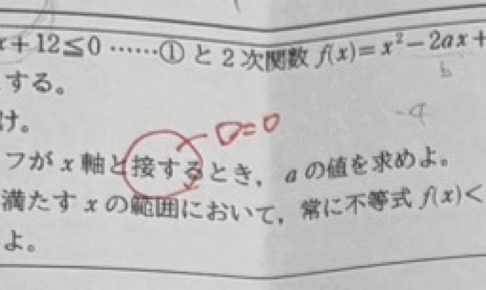 x+12≦0 ……① と 2 次関数 f(x)=x²−2ax+
する。
b
け。
-4
D=0
フが x 軸と接するとき，a の値を求めよ。
満たす x の範囲において，常に不等式 f(x)<
よ。